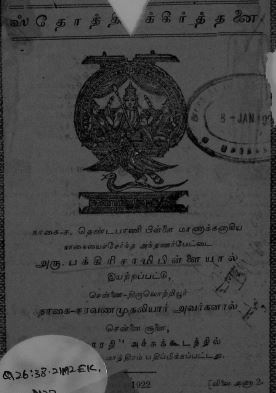 ஸ்தோத்த க்கீர்த்தனை
8-JAN
நாகை-ச. தெண்டபாணி பிள்ளை மாணாக்கனாகிய
நாகையைச்சேர்ந்த அந்தணர்பேட்டை
அரு. பக்கிரிசாமிபிள்ளையால்
இயற்றப்பட்டு,
சென்னை-திருவொற்றியூர்
நாகை-சரவணமுதலியார் அவர்களால்
சென்னை சூளை,
ரதி" அச்சுக்கூடத்தில்
பதிப்பிக்கப்பட்டது.
1922
[விலை அணா 2.